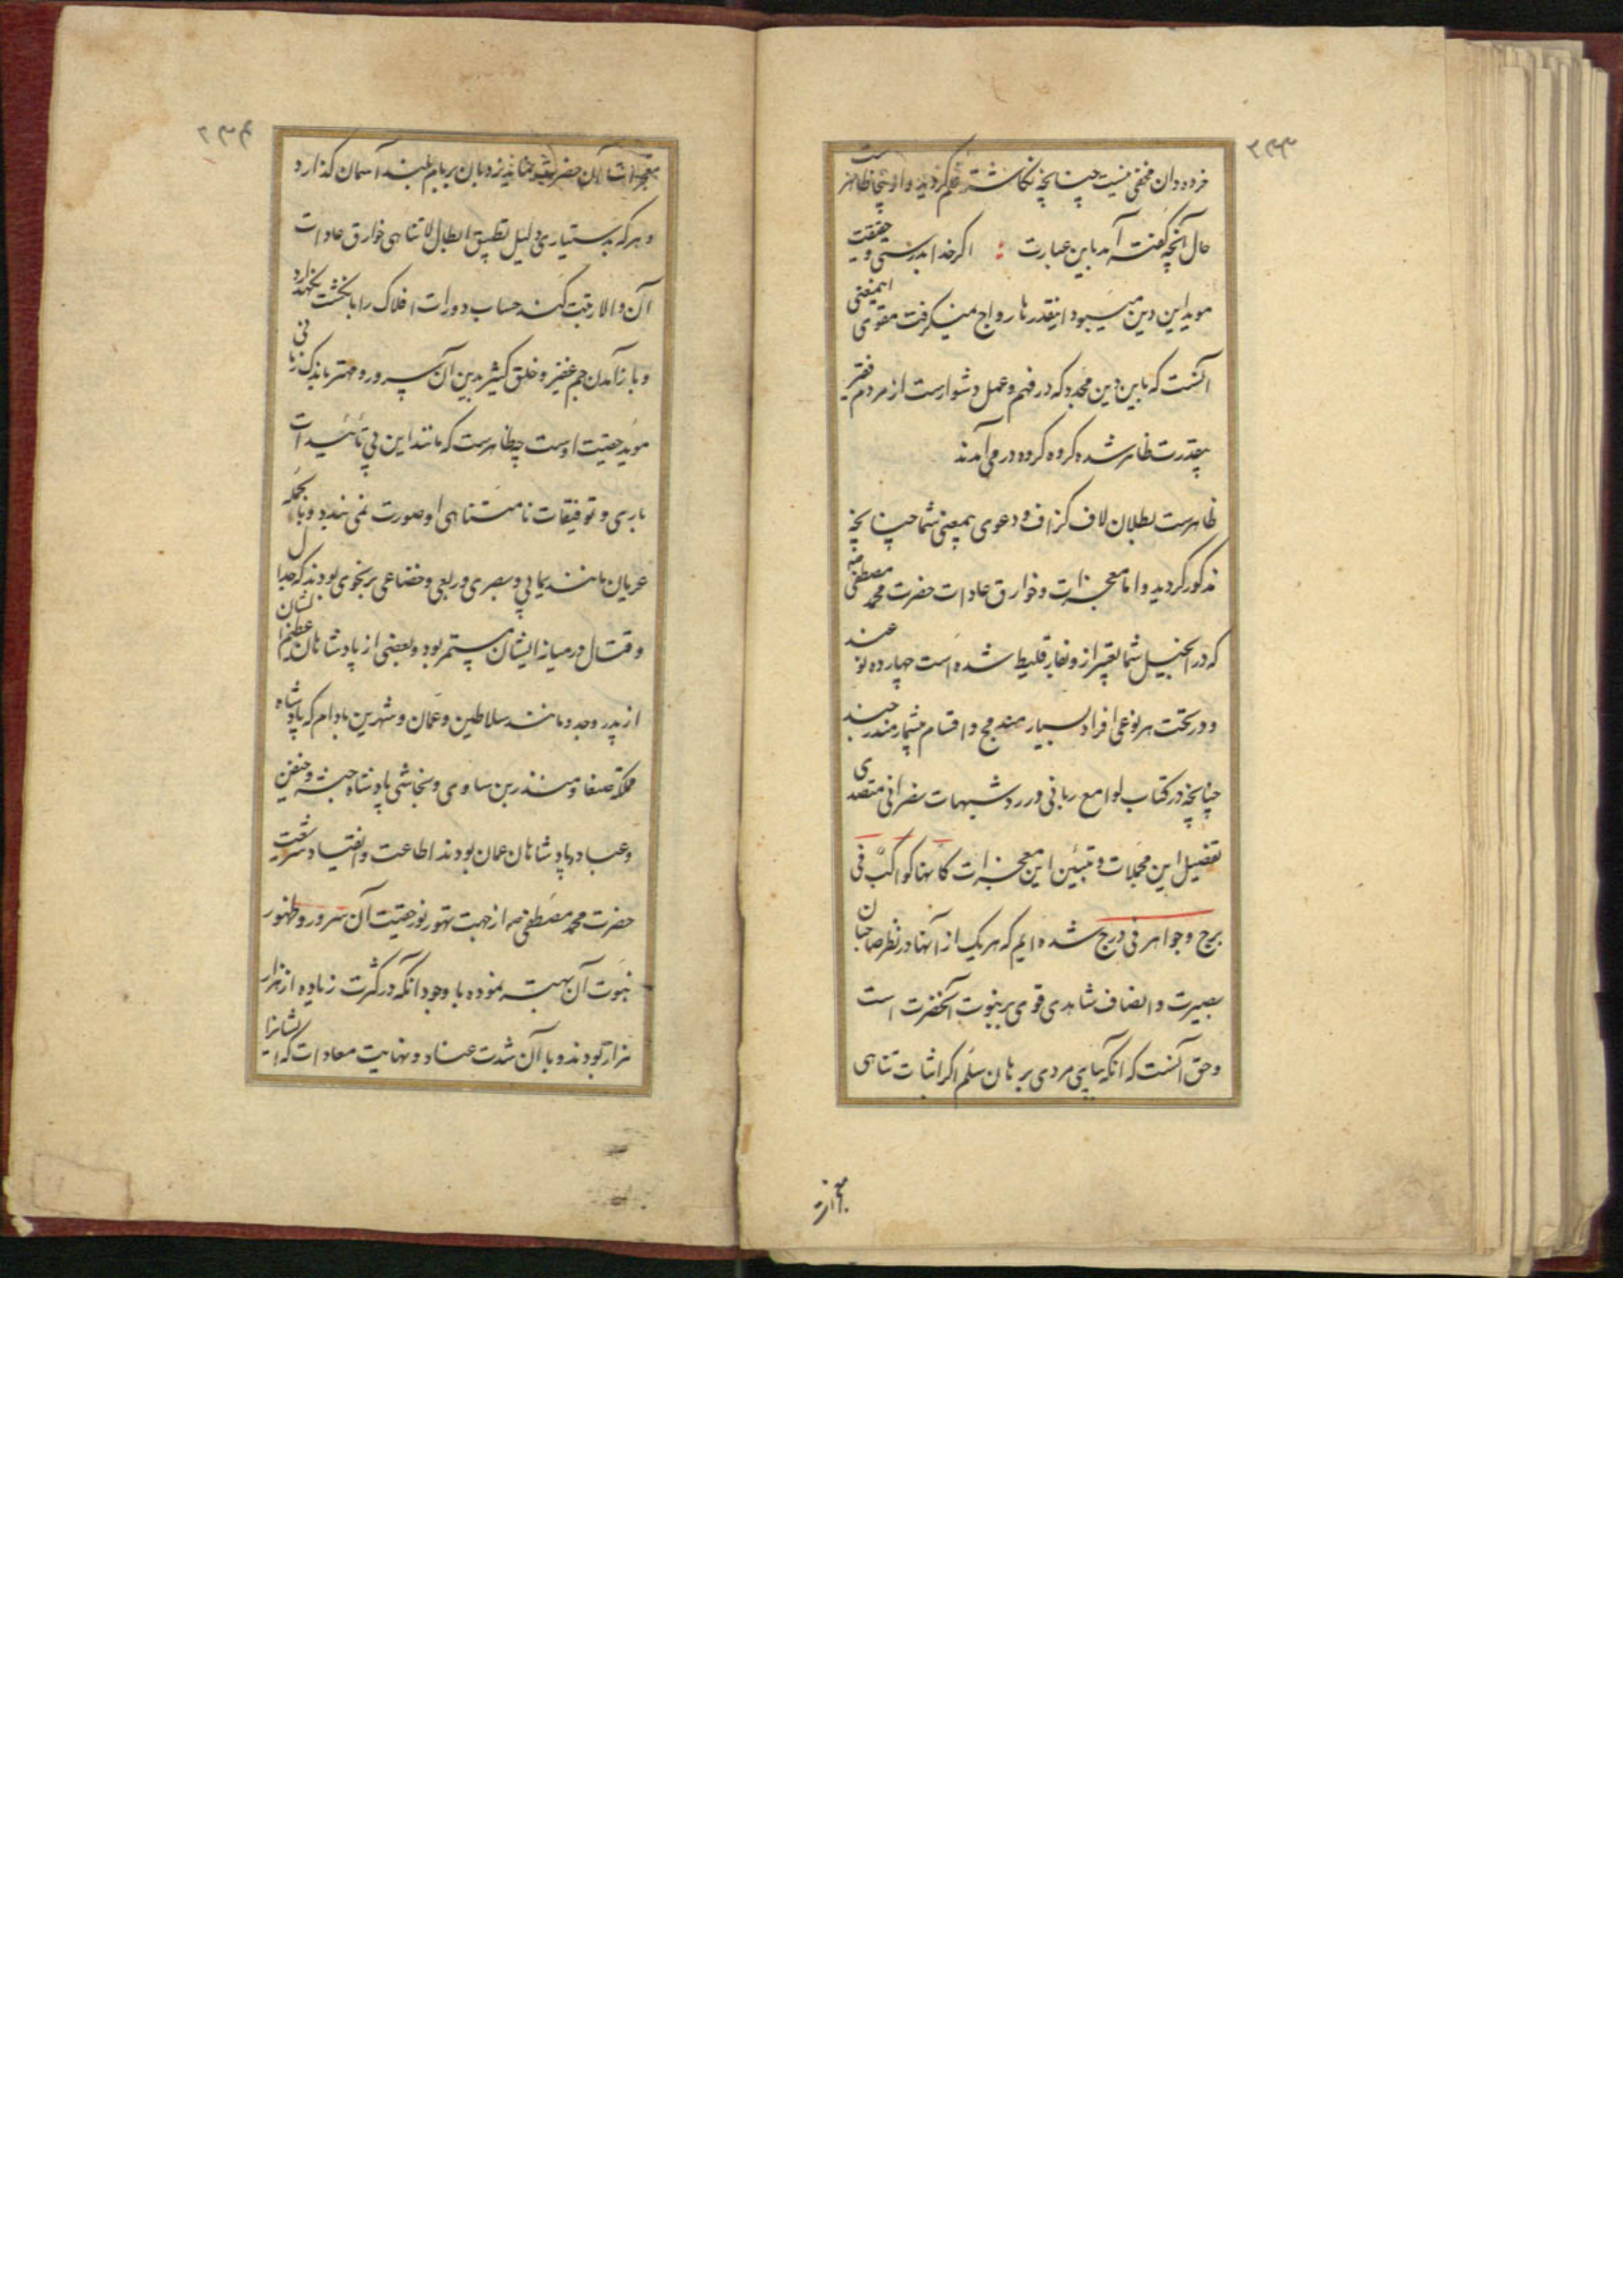 ۲۳۳
خرده دان مخفی نیست چنانچه نکاشته قلم کردید و از اینجا ظاهر است
حال آنچه گفته آمد باین عبارت : اکر خدا بدرستی و حقیقت
موید این دین میبود اینقدرها رواج نمیکرفت مقوی اینمعنی
آنست که باین دین محمد که در فهم و عمل دشوارست از مردم فقیر
بیقدرت ظاهر شده کروه کروه در می آمدند
ظاهرست بطلان لاف کزاف و دعوی بیمعنی شما چنانچه
مذکور کردید و اما معجزات و خوارق عادات حضرت محمد مصطفی
که در انجیل شما تعبیر از و بفارقلیط شده است چهارده نوعند
و در تحت هر نوعی افراد بسیار مندمج و اقسام بیشمار مندرجند
چنانچه در کتاب لوامع ربانی در رد شبهات نصرانی متصدی
تفصیل این مجملات و تبیین این معجزات کانها کواکب فی
برج و جواهر فی درج شده ایم که هر یک از آنها در نظر صاحبان
بصیرت و انصاف شاهدی قوی بر نبوت آنحضرت است
و حق آنست که آنکه بپای مردی برهان سلم اکر اثبات تناهی
معجزات
۲۳۴
معجزات آن حضرت نماید نردبان بر بام بلند آسمان کذارد
و هر که بدستیاری دلیل تطبیق ابطال لا تناهی خوارق عادات
آن والا رتبت کند حساب دورات افلاک را با نکشت نکهدارد
و باز آمدن جم غفیر و خلق کثیر بدین آن سرور و مهتر باندک زمانی
موید حقیت اوست چه ظاهرست که مانند این بی تائیدات
باری و توفیقات نامتناهی او صورت نمی بندد و بالجمله
عربان مانند یمانی و بصری و ربعی و خضاعی بر نحوی بودند که جدال
و قتال در میانه ایشان مستمر بود و بعضی از پادشاهان عظیم الشان
از پدر و جد و مانند سلاطین و عمان و شهر بن بادام که پادشاه
مملکة صنعا و منذر بن ساوی و نجاشی پادشاه حبشه و جیفر
و عباد پادشاهان عمان بودند اطاعت و انقیاد شریعت
حضرت محمد مصطفی ص از جهت تهور نور حقیت آن سرور و ظهور
نبوت آن بهتر نموده با وجود آنکه در کثرت زیاده از هزار
هزار بودند و با آن شدت عناد و نهایت معادات که ایشانرا